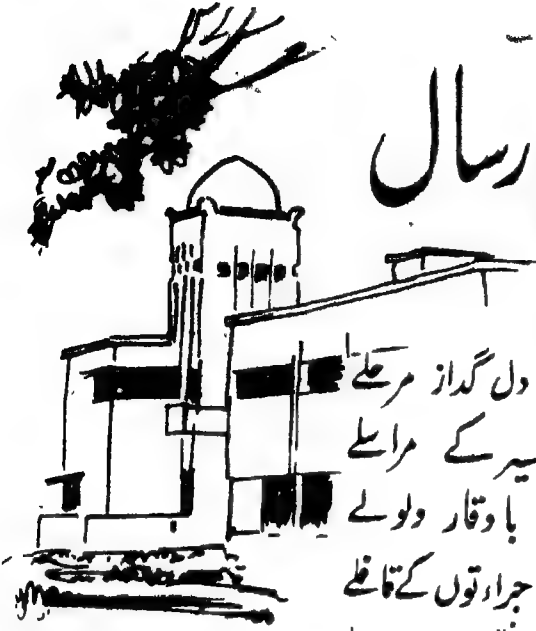 رسال
دل گداز مرحلے
سیر کے مراسلے
باوقار ولولے
جراءتوں کے قافلے